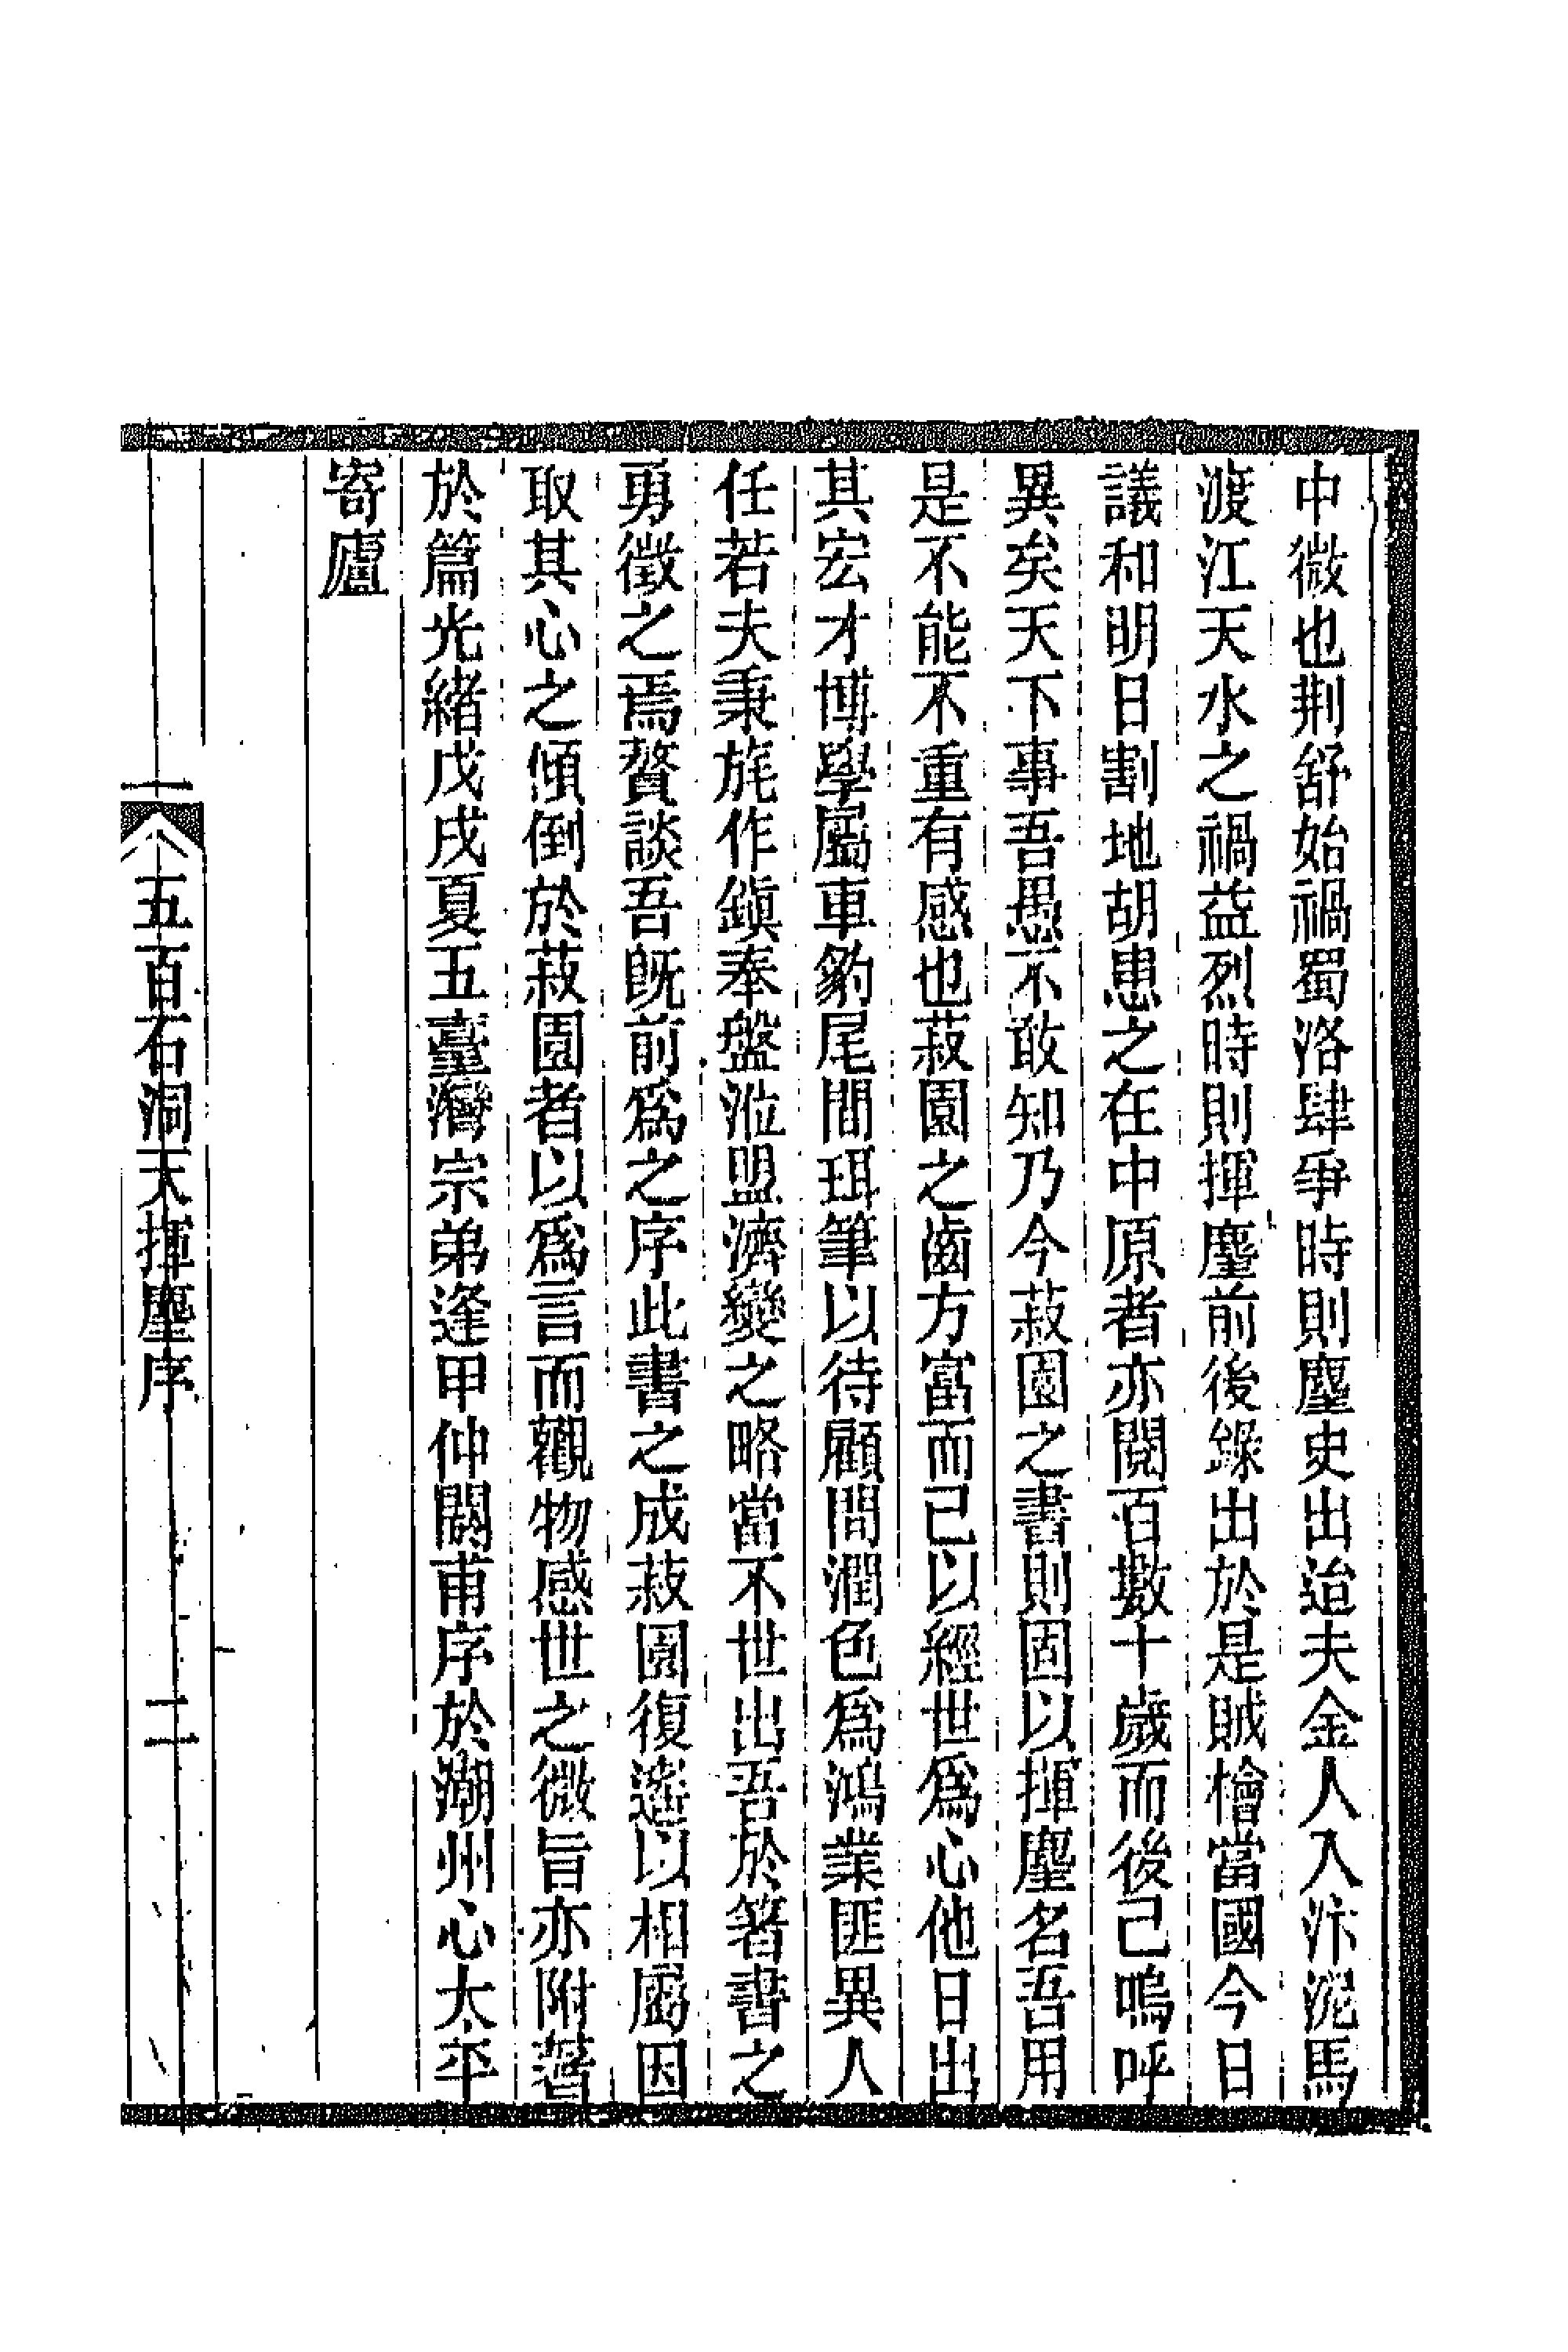 中微也荆舒始禍蜀洛肆爭時則麈史出迨夫金人入汴泥馬
渡江天水之禍益烈時則揮麈前後錄出於是賊檜當國今日
議和明日割地胡患之在中原者亦閱百數十歲而後已嗚呼
異矣天下事吾愚不敢知乃今菽園之書則固以揮麈名吾用
是不能不重有感也菽園之齒方富而已以經世爲心他日出
其宏才博學屬車豹尾間珥筆以待顧問潤色爲鴻業匪異人
任若夫秉旄作鎮奉盤涖盟濟變之略當不世出吾於箸書之
勇徵之焉贅談吾旣前爲之序此書之成菽園復遙以相屬因
取其心之傾倒於菽園者以爲言而觀物感世之微旨亦附著
於篇光緒戊戌夏五臺灣宗弟逢甲仲閼甫序於潮州心太平
寄廬
五百石洞天揮麈序
二